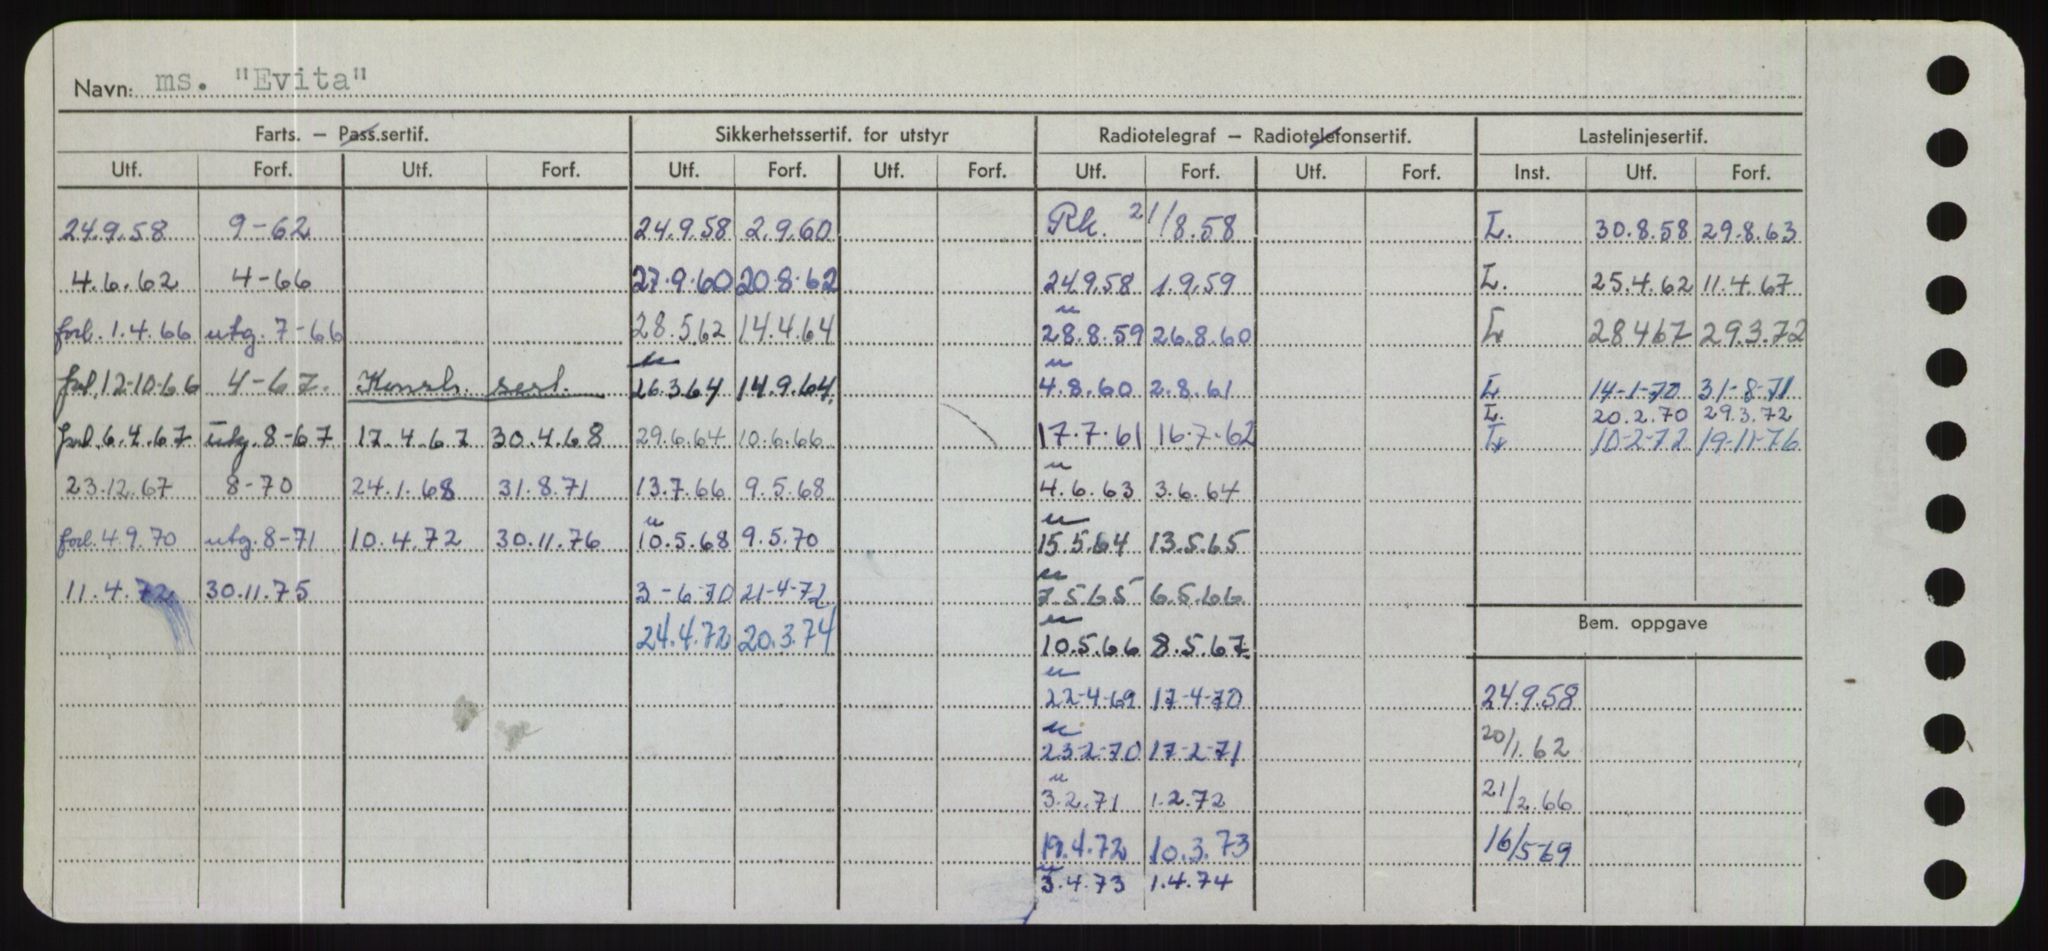 Navn: ms. "Evita"
Farts. – Pass.sertif. Sikkerhetssertif. for utstyr Radiotelegraf – Radiotelefonsertif. Lastelinjesertif.
Utf. Forf. Utf. Forf. Utf. Forf. Utf. Forf. Utf. Forf. Utf. Forf. Inst. Utf. Forf.
24.9.58 9-62 24.9.58 2.9.60 Rk. 21/8.58 L. 30.8.58 29.8.63
4.6.62 4-66 27.9.60 20.8.62 24.9.58 1.9.59 L. 25.4.62 11.4.67
forl. 1.4.66 utg. 7-66 28.5.62 14.4.64 u 28.8.59 26.8.60 L 28.4.67 29.3.72
forl. 12-10-66 4-67. Konsh. sert. u 26.3.64 14.9.64 u 4.8.60 2.8.61 L 14-1-70 31-8-71
L. 20.2.70 29.3.72
forl. 6.4.67 utg. 8-67 17.4.67 30.4.68 29.6.64 10.6.66 17.7.61 16.7.62 L 10-2-72 19-11-76
23.12.67 8-70 24.1.68 31.8.71 13.7.66 9.5.68 u 4.6.63 3.6.64
forl. 4.9.70 utg. 8-71 10.4.72 30.11.76 u 10.5.68 9.5.70 u 15.5.64 13.5.65
11.4.72 30.11.75 3-6-70 21-4-72 u 7.5.65 6.5.66
Bem. oppgave
24.4.72 20.3.74 u 10.5.66 8.5.67
u 22-4-69 17-4-70 24.9.58
u 23-2-70 17-2-71 20/1.62
u 3.2.71 1.2.72 21/2.66
19.4.72 10.3.73 16/5-69
u 3.4.73 1.4.74